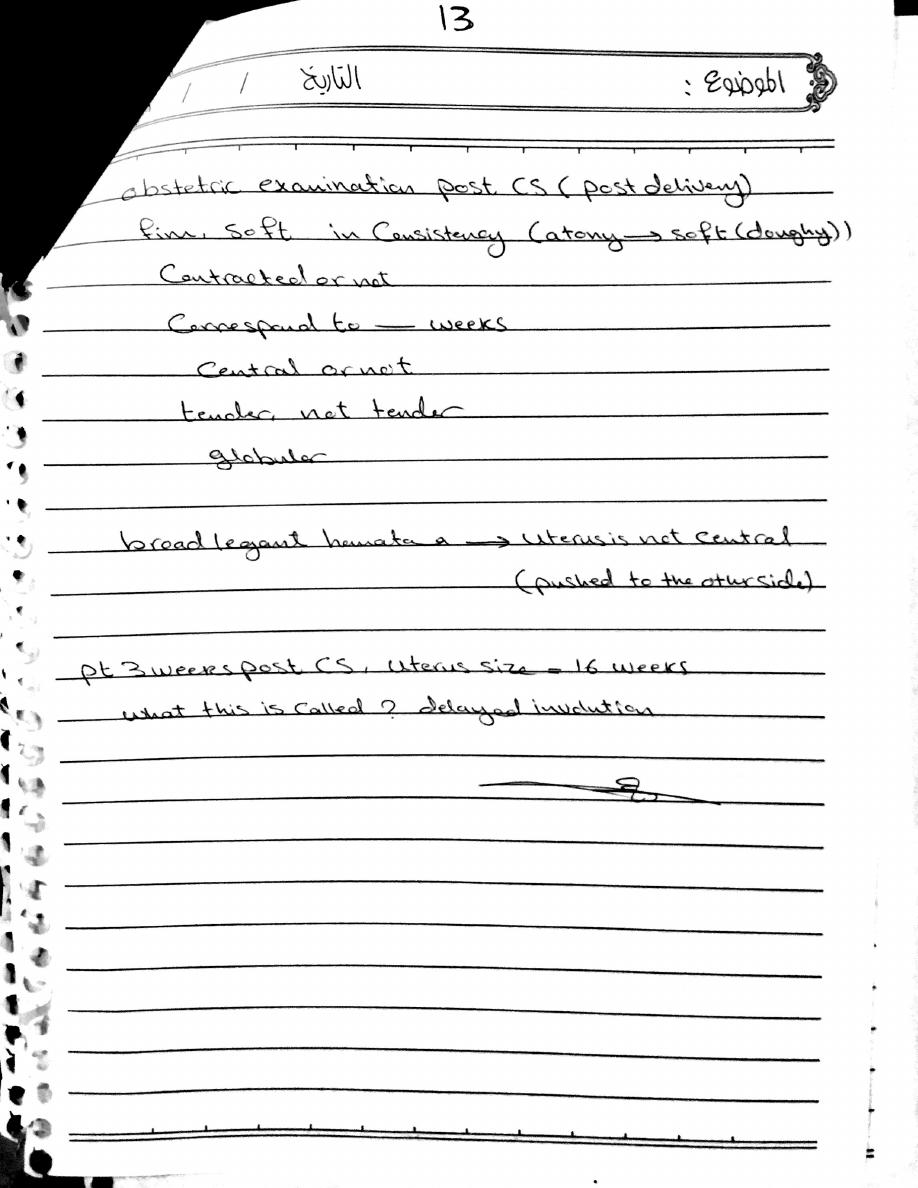 13
الموضوع : التاريخ / /
obstetric examination post CS (post delivery)
firm, soft in Consistency (atony → soft (doughy))
Contracted or not
Correspond to — weeks
Central or not
tender, not tender
globular
broad legant hemata a → uterus is not central
(pushed to the other side)
pt 3 weeks post CS, uterus size = 16 weeks
what this is called ? delayed involution